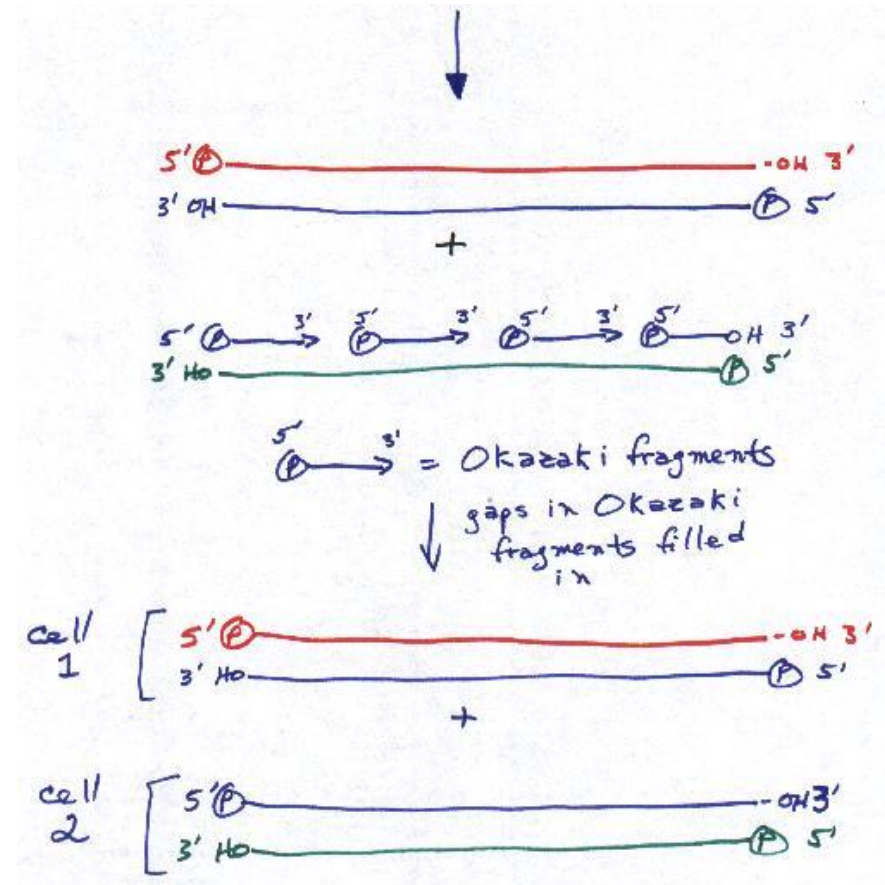 5' P -OH 3'
3' OH P 5'
+
5' P 3' P 5' 3' P 5' 3' P 5' OH 3'
3' HO P 5'
5' P 3' = Okazaki fragments
gaps in Okazaki
fragments filled
in
cell 1 5' P -OH 3'
3' HO P 5'
+
cell 2 5' P -OH 3'
3' HO P 5'